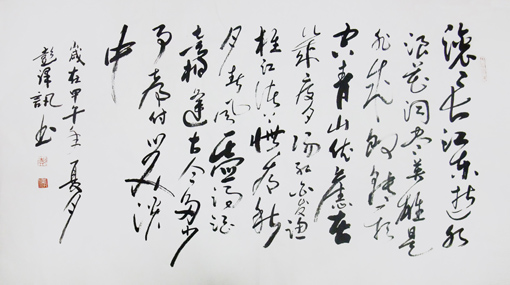 滚滚长江东逝水
浪花淘尽英雄是
非成败转头
空青山依舊在
几度夕阳红白发渔
樵江渚上惯看秋
月春风一壶浊酒
喜相逢古今多少
事都付笑谈
中
歲在甲午年夏夕
彭澤訊书